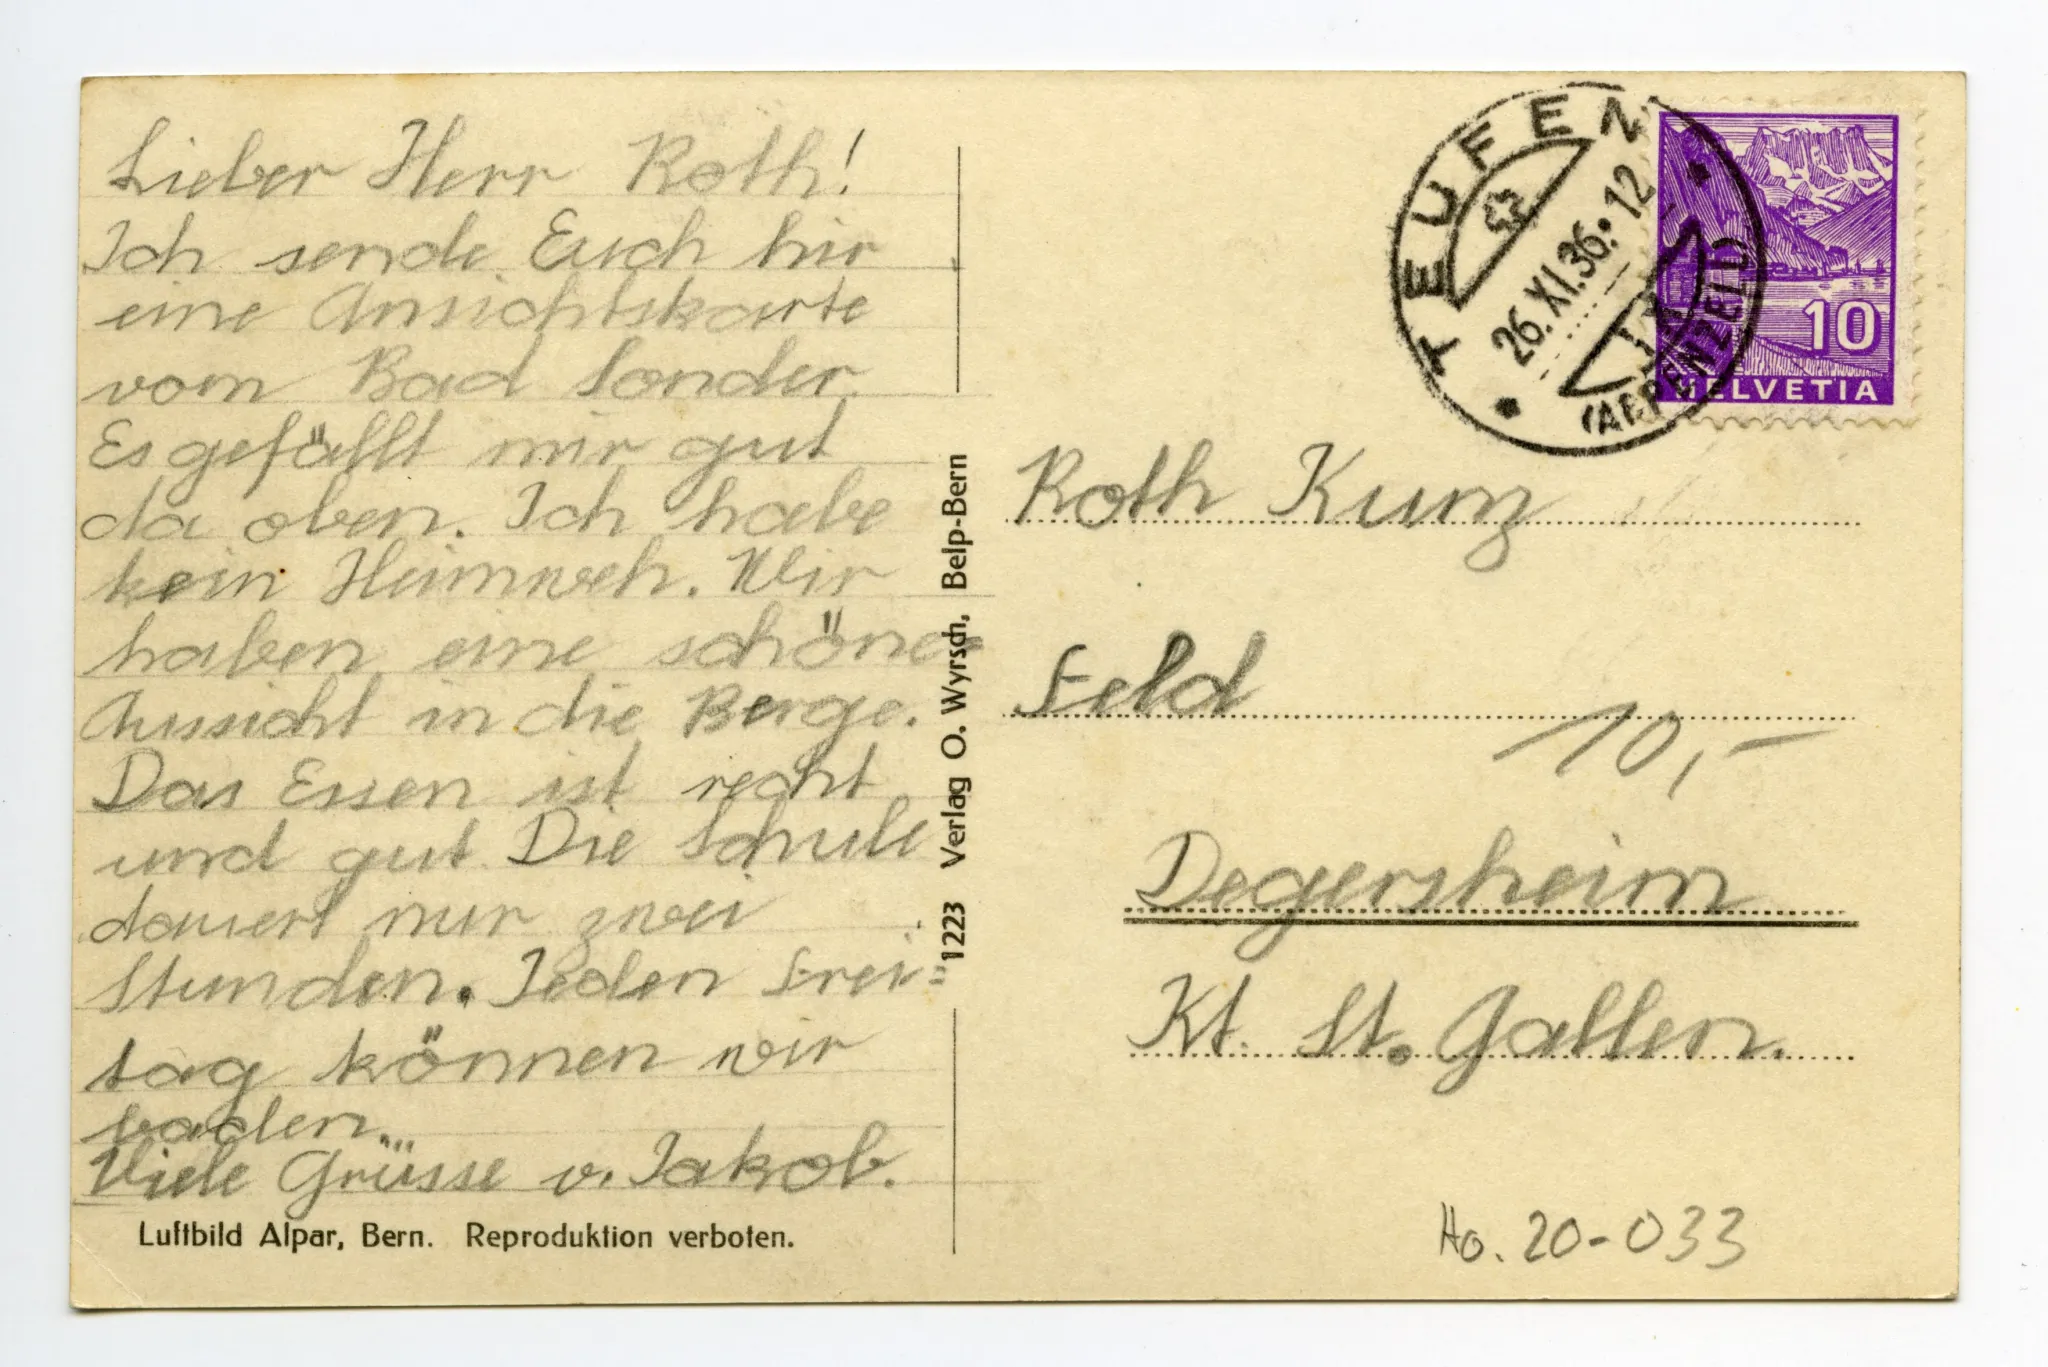 Lieber Herr Roth!
Ich sende Euch hir
eine Ansichtskarte
vom Bad Sonder.
Es gefällt mir gut
da oben. Ich habe
kein Heimweh. Wir
haben eine schöne
Aussicht in die Berge.
Das Essen ist recht
und gut Die Schule
dauert nur zwei
Stunden. Jeden Frei=
tag können wir
baden.
Viele Grüsse v. Jakob.
Luftbild Alpar, Bern. Reproduktion verboten.
1223 Verlag O. Wyrsch, Belp-Bern
TEUFEN
26.XI.36.12
(APPENZELL)
10
HELVETIA
Roth Kunz
Feld
10,-
Degersheim
Kt. St. Gallen.
Ho. 20-033